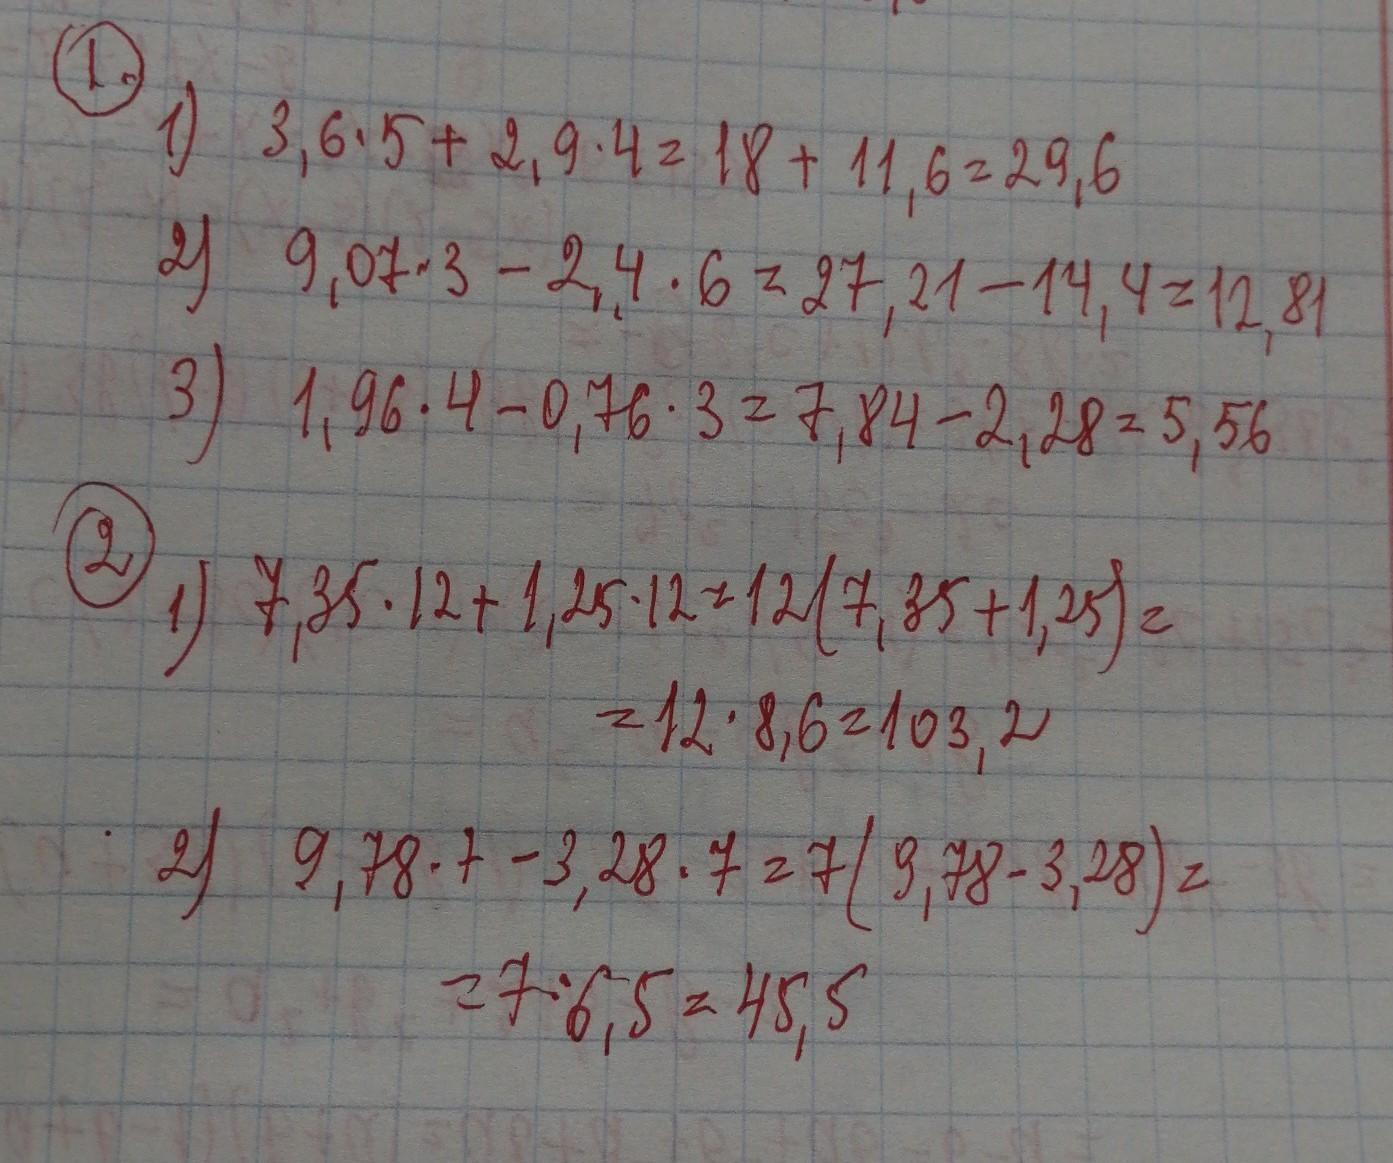 1.
1) 3,6·5+2,9·4=18+11,6=29,6
2) 9,07·3-2,4·6=27,21-14,4=12,81
3) 1,96·4-0,76·3=7,84-2,28=5,56
2
1) 7,35·12+1,25·12=12(7,35+1,25)=
=12·8,6=103,2
2) 9,78·7-3,28·7=7(9,78-3,28)=
=7·6,5=45,5